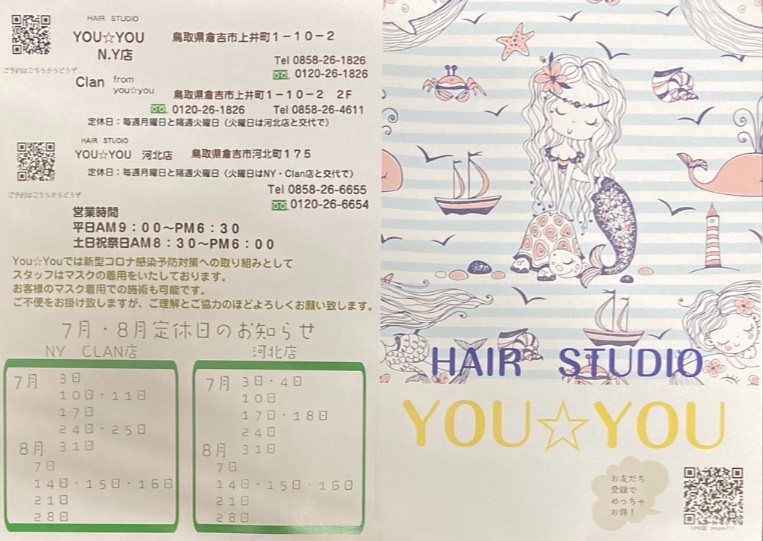 HAIR STUDIO
YOU☆YOU
N.Y店
鳥取県倉吉市上井町1－10－2
Tel 0858-26-1826
0120-26-1826
ご予約はこちらからどうぞ
Clan from
you☆you
鳥取県倉吉市上井町1－10－2 2F
0120-26-1826 Tel 0858-26-4611
定休日：毎週月曜日と隔週火曜日（火曜日は河北店と交代で）
HAIR STUDIO
YOU☆YOU 河北店 鳥取県倉吉市河北町175
定休日：毎週月曜日と隔週火曜日（火曜日はNY・Clan店と交代で）
ご予約はこちらからどうぞ
Tel 0858-26-6655
0120-26-6654
営業時間
平日AM9：00～PM6：30
土日祝祭日AM8：30～PM6：00
You☆Youでは新型コロナ感染予防対策への取り組みとして
スタッフはマスクの着用をいたしております。
お客様のマスク着用での施術も可能です。
ご不便をお掛け致しますが、ご理解とご協力のほどよろしくお願い致します。
7月・8月定休日のお知らせ
NY CLAN店
7月 3日
10日・11日
17日
24日・25日
31日
8月
7日
14日・15日・16日
21日
28日
河北店
7月 3日・4日
10日
17日・18日
24日
31日
8月
7日
14日・15日・16日
21日
28日
HAIR STUDIO
YOU☆YOU
お友だち
登録で
めっちゃ
お得！